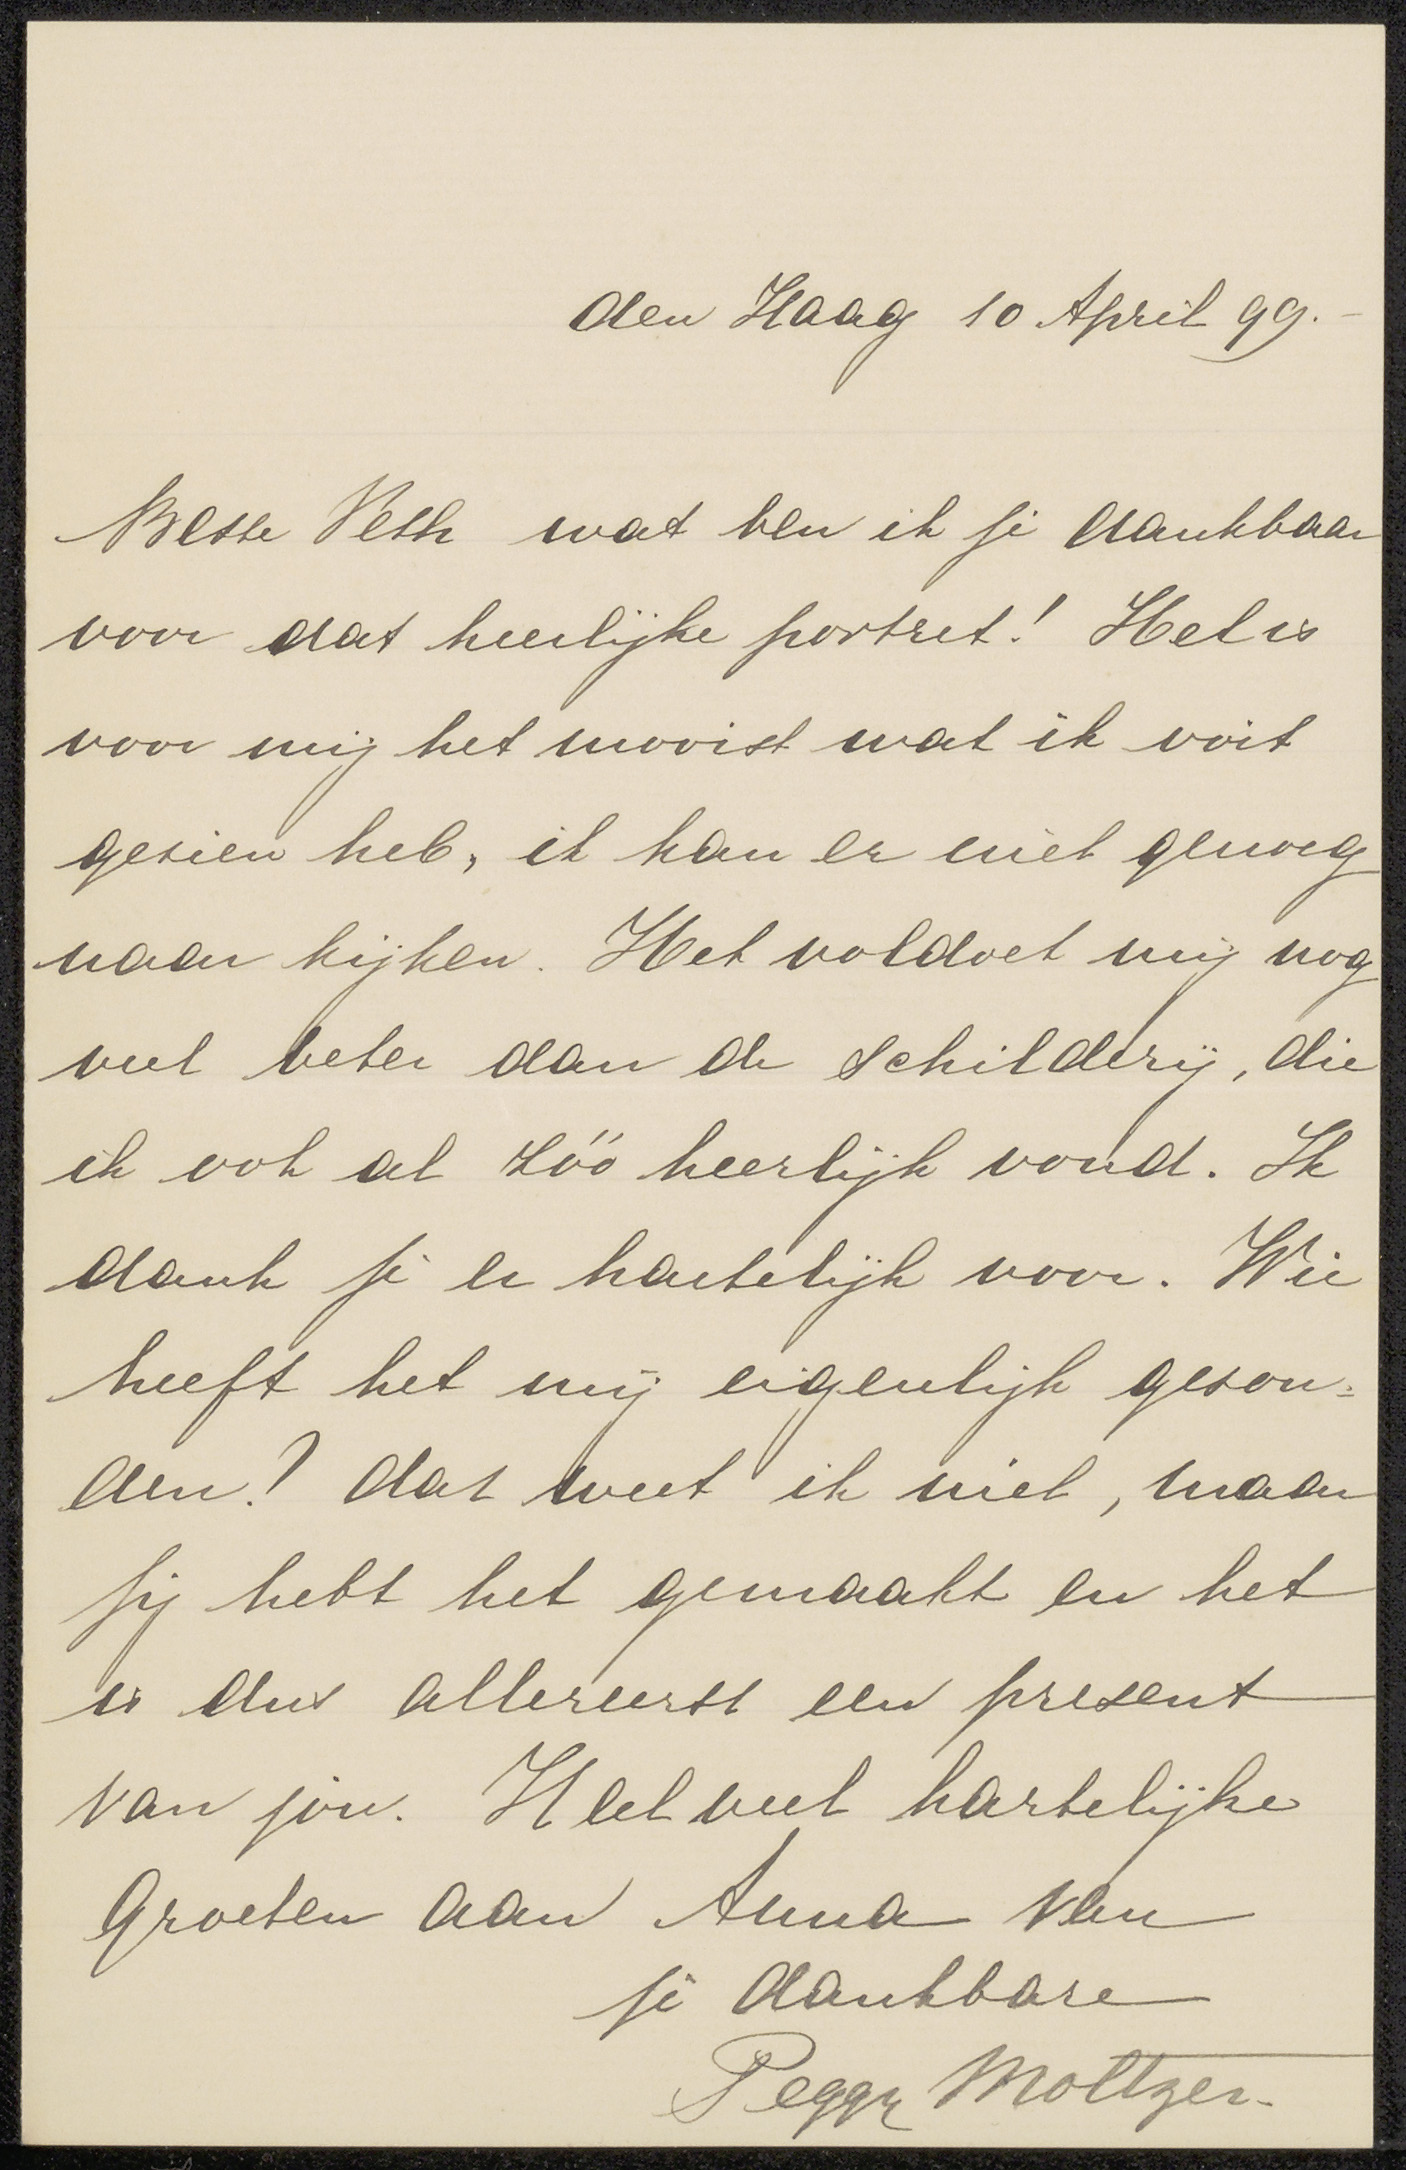 den Haag 10 April 99.-
Beste Veth wat ben ik je dankbaar
voor dat heerlijke portret! Het is
voor mij het mooist wat ik ooit
gezien heb, ik kan er niet genoeg
naar kijken. Het voldoet mij nog
veel beter dan de schilderij, die
ik ook al zóó heerlijk vond. Ik
dank je er hartelijk voor. Wie
heeft het mij eigenlijk gezon=
den? dat weet ik niet, maar
jij hebt het gemaakt en het
is dus allereerst een present
van jou. Heel veel hartelijke
Groeten aan Anna van
je dankbare
Peggy Moltzer.